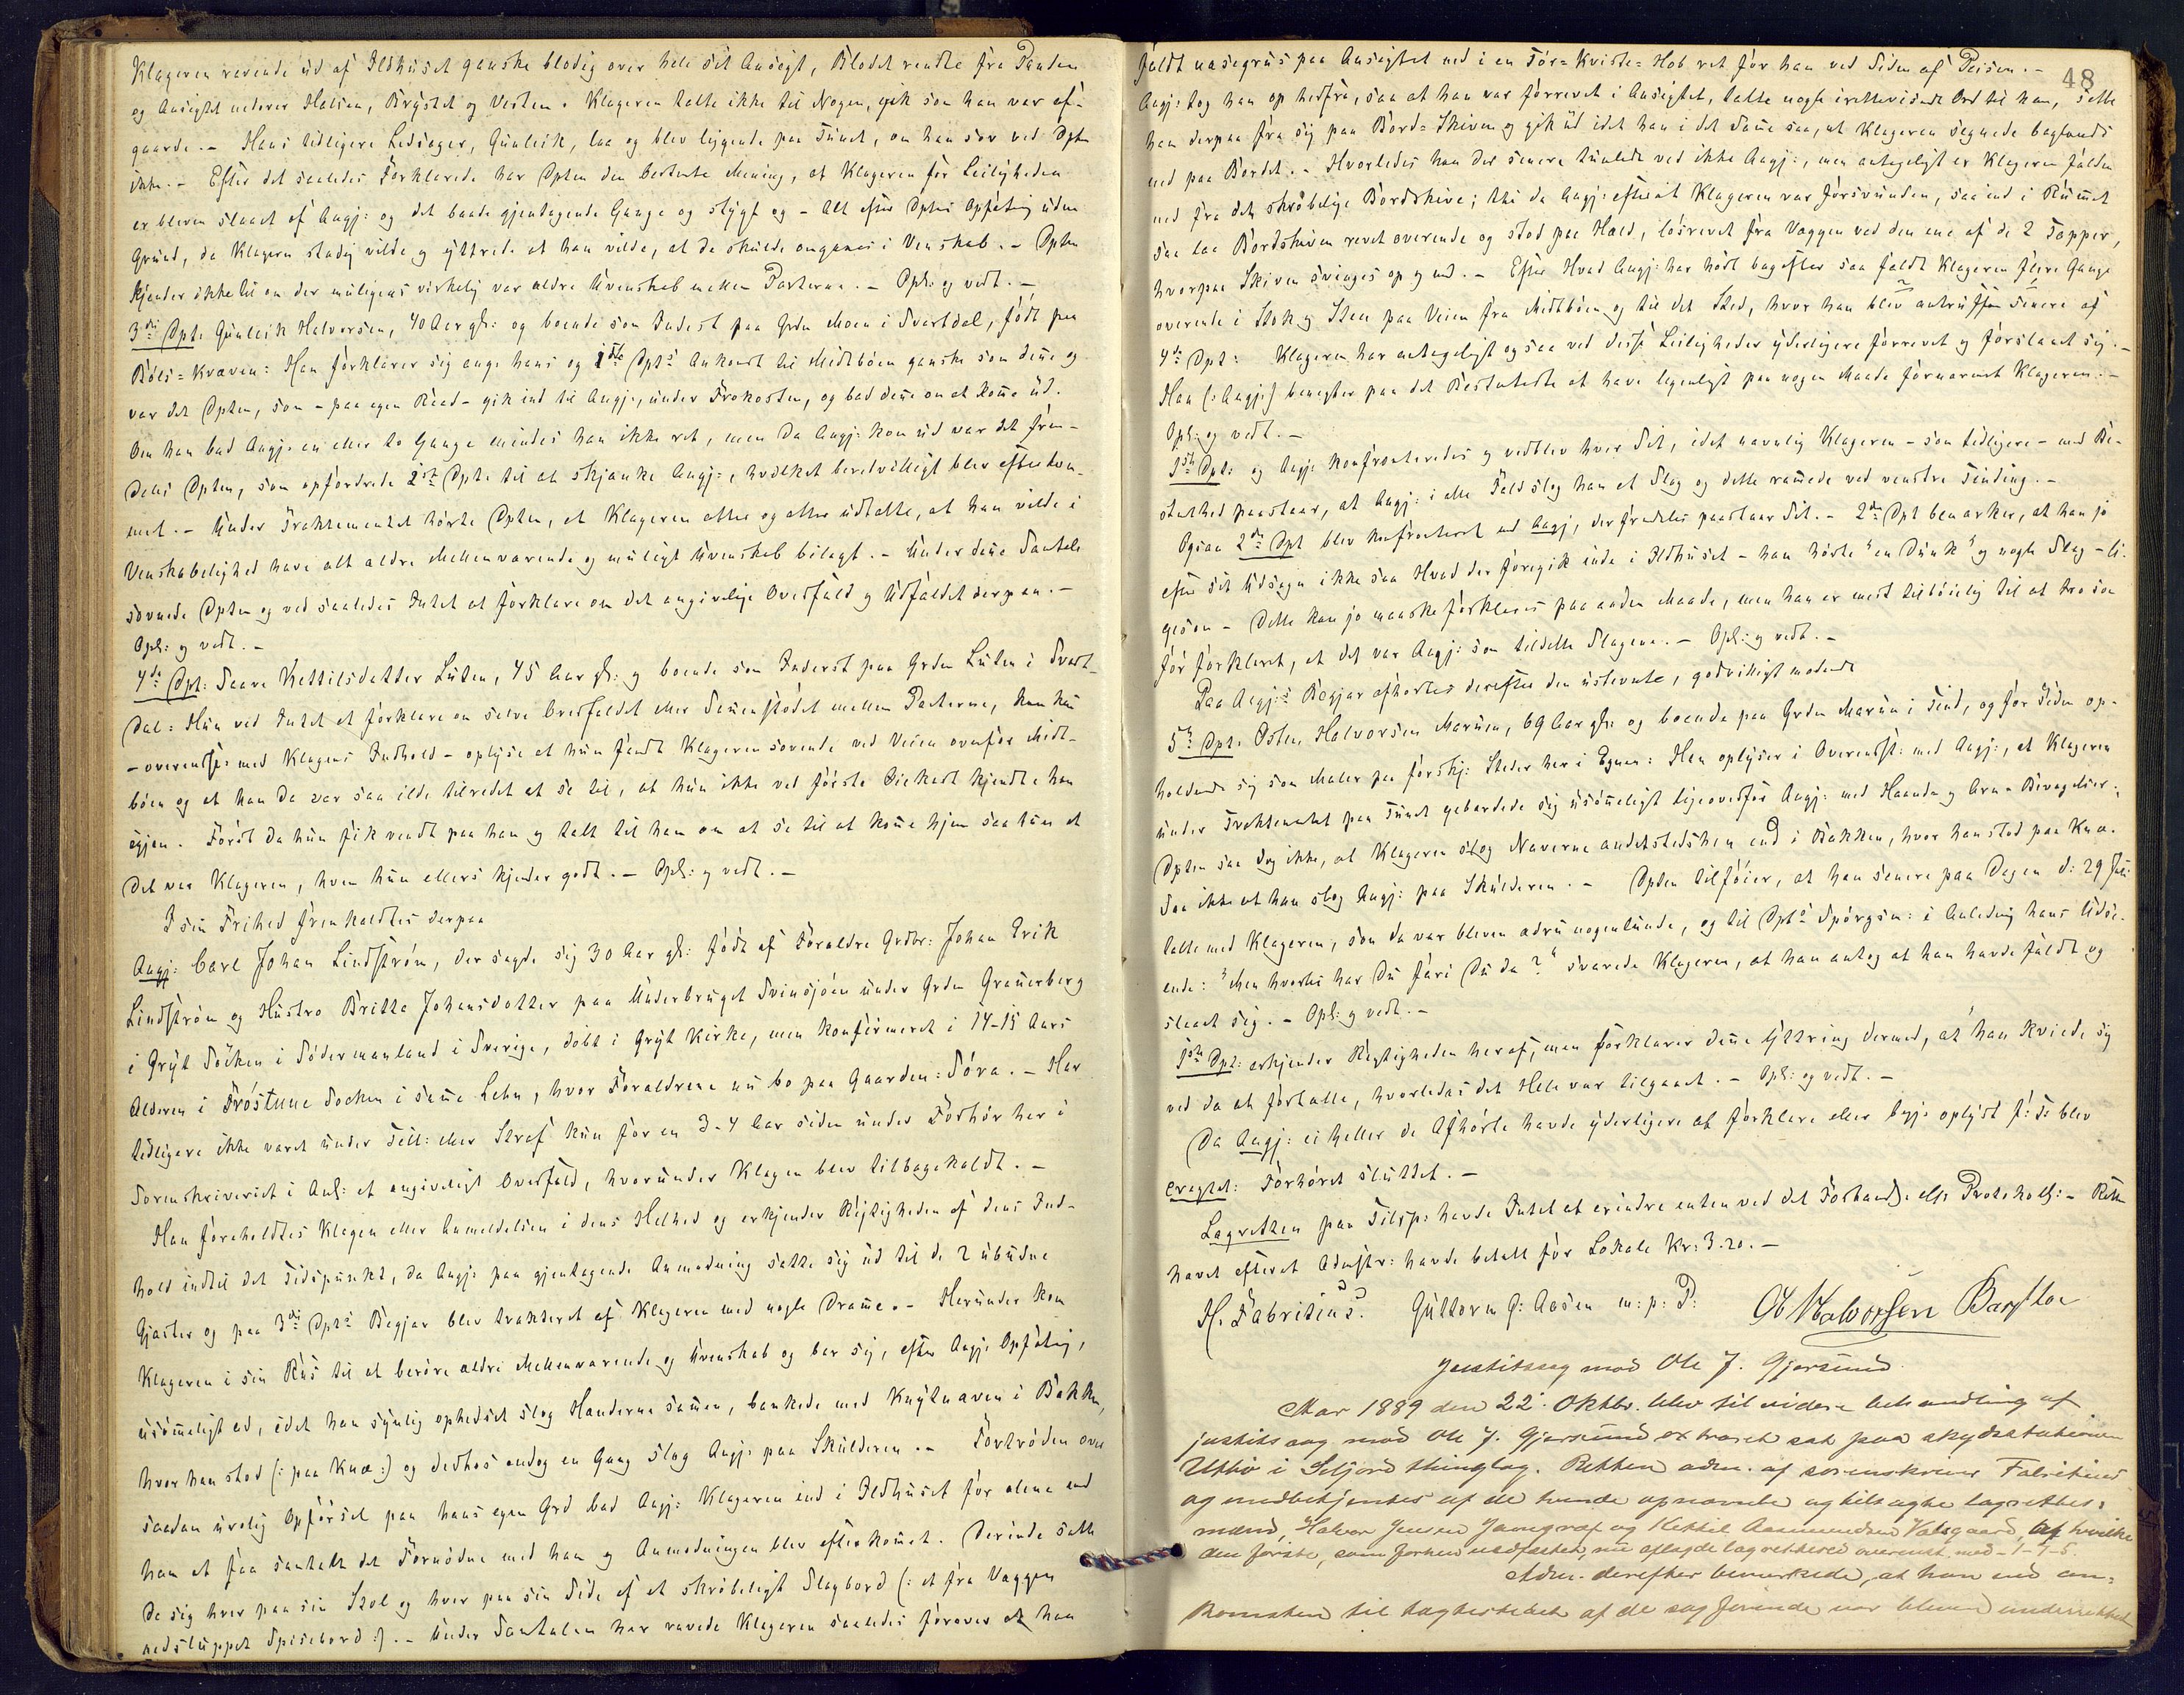 Klageren ravende ud af Ildhuset ganske blodig over hele sit Ansigt, Blodet rendte fra Panden
og Ansigtet nedover Halsen, Brystet og Vesten. Klageren talte ikke til Nogen, gik som han var af-
gaarde. – Hans tidligere Ledsager, Gunleik, laa og blev liggende paa Tunet, om han sov ved Dptn
ikke. – Efter det saaledes Forklarede har Dptn den bestemte Mening, at Klageren før Leiligheden
er bleven slaaet af Angj: og det baade gjentagende Gange og stygt og – Alt efter Dptns Opfatng uden
Grund, da Klageren stadig vilde og yttrede at han vilde, at de skulde omgaaes i Venskab. – Dptn
kjender ikke til om der muligens virkelig var ældre Uvenskab mellem Parterne. – Opl: og vedt. –
3die Dpt: Gunleik Halvorsen, 40 Aar gl: og boende som Inderst paa Grdn Moen i Svartdal, født paa
Bøls-Kvæven: Han forklarer sig ang: hans og 1ste Dpts Ankomst til Midtbøen ganske som denne og
var det Dptn, som – paa egen Raad – gik ind til Angj:, under Frokosten, og bad denne om at komme ud.
Om han bad Angj: en eller to Gange mindes han ikke ret, men da Angj: kom ud var det frem-
deles Dptn, som opfordrede 2den Dpt: til at skjænke Angj:, hvilket beredvilligt blev efterkom-
met. – Under Traktementet hørte Dptn, at Klageren atter og atter udtalte, at han vilde i
Venskabelighed have alt ældre Mellemværende og muligt Uvenskab bilagt. – Under denne Samtale
sovnede Dptn og ved saaledes Intet at forklare om det angivelige Overfald og Udfaldet derpaa. –
Opl: og vedt. –
4de Dpt: Saave Kettilsdatter Luten, 45 Aar gl: og boende som Inderst paa Grdn Luten i Svart-
dal: Hun ved Intet at forklare om selve Overfaldet eller Sammenstødet mellem Parterne, kan kun
– overensst: med Klagens Indhold – oplyse at hun fandt Klageren sovende ved Veien ovenfor Midt-
bøen og at han da var saa ilde tilredet at se til, at hun ikke ved første Øiekast kjendte han
igjen. Først da hun fik vendt paa han og talt til han om at se til at komme hjem saa hun at
det var Klageren, hvem hun ellers kjender godt. – Opl: og vedt. –
I sin Frihed fremkaldtes derpaa
Angj: Carl Johan Lindstrøm, der sagde sig 30 Aar gl: født af Forældre Grdbr: Johan Erik
Lindstrøm og Hustro Britta Johansdotter paa Underbruget Svinsjöen under Grdn Grauerberg
i Gryt Socken i Södermanland i Sverige, døbt i Gryt Kirke, men konfirmeret i 14-15 Aars
Alderen i Fröstune Socken i samme Lehn, hvor Forældrene nu bo paa Gaarden: Söra. – Har
tidligere ikke været under Tilt: eller Straf kun for en 3-4 Aar siden under Forhør her i
Sorenskriveriet i Anl: et angiveligt Overfald, hvorunder Klagen blev tilbagekaldt. –
Han foreholdtes Klagen eller Anmeldelsen i dens Helhed og erkjender Rigtigheden af dens Ind-
hold indtil det Tidspunkt, da Angj: paa gjentagende Anmodning satte sig ud til de 2 ubudne
Gjæster og paa 3die Dpts Begjær blev trakteret af Klageren med nogle Dramme. – Herunder kom
Klageren i sin Rus til at berøre ældre Mellemværende og Uvenskab og bar sig, efter Angj: Opfatng,
usømmeligt ad, idet han synlig ophidset slog Hænderne sammen, bankede med Knytnæven i Bakken,
hvor han stod (: paa Knæ :) og dethos endog en Gang slog Angj: paa Skulderen. – Fortrøden over
saadan urolig Opførsel paa hans egen Grd bad Angj: Klageren ind i Ildhuset for alene med
ham at faa samtalt det Fornødne med han og Anmodningen blev efterkommet. Derinde satte
de sig hver paa sin Stol og hver paa sin Side af et skrøbeligt Slagbord (: et fra Væggen
nedsluppet Spisebord :). – Under Samtalen her ravede Klageren saaledes forover at han
48
faldt næsegrus paa Ansigtet ned i en Tør-Kviste-Hob ret for han ved Siden af Peisen. –
Angj: tog han op herfra, saa at han var forrevet i Ansigtet, talte nogle irettevisende Ord til han, satte
han derpaa fra sig paa Bord-Skiven og gik ud idet han i det samme saa, at Klageren segnede baglænds
ned paa Bordet. – Hvorledes han der senere tumlede ved ikke Angj:, men antageligt er Klageren falden
ned fra den skrøbelige Bordskive; thi da Angj: efterat Klageren var forsvunden, saa ind i Rummet
saa laa Bordskiven revet overende og stod paa Hæld, løsrevet fra Væggen ved den ene af de 2 Tapper,
hvorpaa Skiven svinges op og ned. – Efter Hvad Angj: har hørt bagefter saa faldt Klageren flere Gange
overende i Stok og Sten paa Veien fra Midtbøen og til det Sted, hvor han blev antruffen senere af
4de Dpt: Klageren har antageligt ogsaa ved disse Leiligheder yderligere forrevet og forslaaet sig. –
Han (: Angj:) benegter paa det Bestemteste at have legemligt paa nogen Maade fornærmet Klageren. –
Opl: og vedt. –
1ste Dpt: og Angj: konfronteredes og vedblev hver Sit, idet navnlig Klageren – som tidligere – med Be-
stemthed paastaar, at Angj: i alle Fald slog han et Slag og dette ramede ved venstre Tinding. –
Ogsaa 2den Dpt blev konfronteret med Angj:, der fremdeles paastaar Sit. – 2den Dpt bemærker, at han jo
efter sit Udsagn ikke saa Hvad der foregik inde i Ildhuset – han hørte "en Dunk" og nogle Slag – li-
gesom – Dette kan jo maaske forklares paa anden Maade, men han er mest tilbøielig til at tro som
før forklaret, at det var Angj: som tildelte Slagene. – Opl: og vedt. –
Paa Angj:s Begjær afhørtes derefter den ustevnte, godvilligt mødende
5te Dpt: Østen Halvorsen Marum, 69 Aar gl: og boende paa Grdn Marum i Tind, og for Tiden op-
holdende sig som Maler paa forskj: Steder her i Egnen: Han oplyser i Overensst: med Angj:, at Klageren
under Traktementet paa Tunet gebærdede sig usømmeligt ligeoverfor Angj: med Haande- og Arm-Bevægelser;
Dptn saa dog ikke, at Klageren slog Næverne andetstedshen end i Bakken, hvor han stod paa Knæ.
Saa ikke at han slog Angj: paa Skulderen. – Dptn tilføier, at han senere paa Dagen d: 29 Juli
talte med Klageren, som da var bleven ædru nogenlunde, og til Dpts Spørgsm: i Anledng hans Udsee-
ende: "Men hvorhi har Du fari Du da?" svarede Klageren, at han antog at han havde faldt og
slaaet sig. – Opl: og vedt. –
1ste Dpt: erkjender Rigtigheden heraf, men forklarer denne Yttring dermed, at han kviede sig
ved da at fortælle, hvorledes det Hele var tilgaaet. – Opl: og vedt. –
Da Angj: ei heller de Afhørte havde yderligere at forklare eller begj: oplyst f: T: blev
eragtet: Forhøret sluttet. –
Lagretten paa Tilsp: havde Intet at erindre enten ved det Forhand: ell: Protokoll: – Retten
hævet efterat Admstr: havde betalt for Lokale Kr: 3.20. –
H. Fabritius. Guttorm G: Aasen m: p: P: Ob Halvorsen Barstoe
Justitssag mod Ole J. Gjersund
Aar 1889 den 22. Oktbr. blev til videre behandling af
justitssag mod Ole J. Gjersund extraret sat paa skydsstationen
Utbø i Seljord thinglag. Retten adm. af sorenskriver Fabritius
og medbetjentes af de tvende opnævnte og tilsagte lagrettes-
mænd, Halvor Jensen Jamgraf og Kettil Aasmundsen Valsgaard, af hvilke
den første, som forhen uedfæstet, nu aflagde lagretteed overenst. med – 1-7-5.
Adm. derefter bemerkede, at han ved an-
komsten til tægtestedet af de sag førende var bleven underrettet